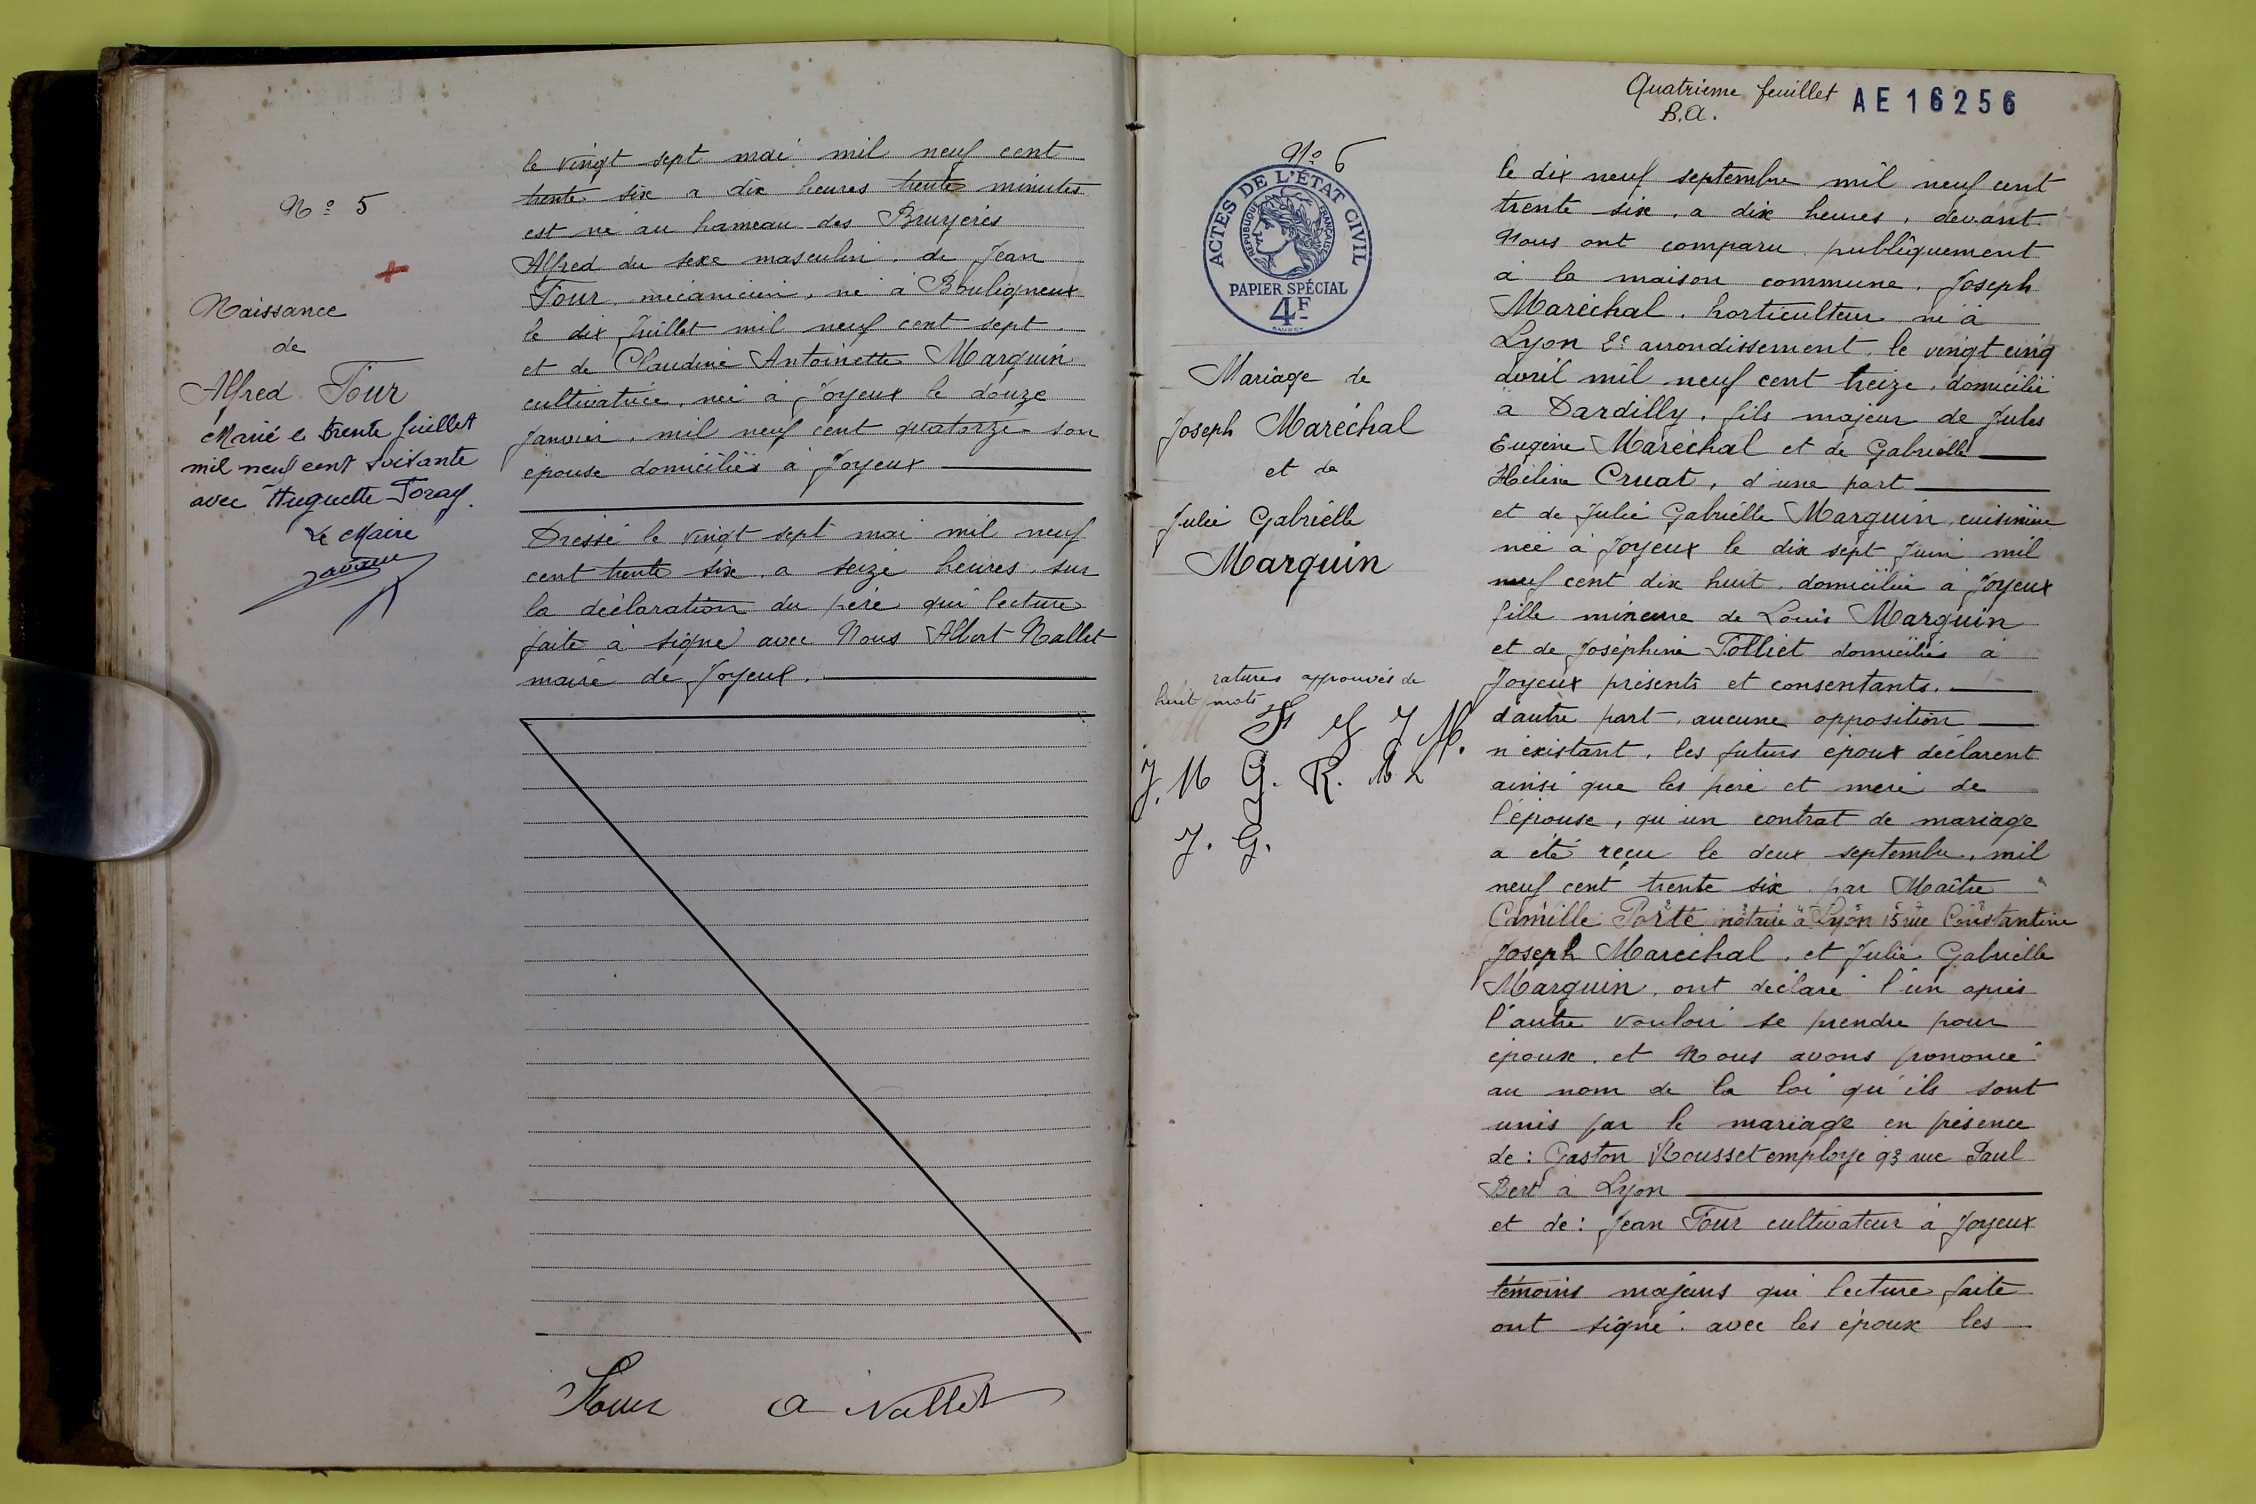 N° 5
Naissance
de
Alfred Four
Marié le trente juillet
mil neuf cent soixante
avec Huguette Foray.
Le Maire
le vingt sept mai mil neuf cent
trente six a dix heures trente minutes
est né au hameau des Bruyères
Alfred du sexe masculin. de Jean
Four, mécanicien, né à Bouligneux
le dix Juillet mil neuf cent sept
et de Claudine Antoinette Marguin
cultivatrice, née à Joyeux le douze
Janvier, mil neuf cent quatorze son
épouse domiciliés à Joyeux
Dressé le vingt sept mai mil neuf
cent trente six. a seize heures, sur
la déclaration du père qui lecture
faite à signé avec Nous Albert Nallet
maire de Joyeux.
Four A Nallet
Quatrième feuillet AE16256
B.A.
N° 6
ACTES DE L'ÉTAT CIVIL
RÉPUBLIQUE FRANÇAISE
PAPIER SPÉCIAL
4F
Mariage de
Joseph Maréchal
et de
Julie Gabrielle
Marguin
ratures approuvés de
huit mots
J. M G. R.
J. G.
le dix neuf septembre mil neuf cent
trente six, a dix heures, devant
Nous ont comparu publiquement
à la maison commune. Joseph
Maréchal. horticulteur né à
Lyon 2e arrondissement. le vingt cinq
avril mil neuf cent treize. domicilié
à Dardilly, fils majeur de Jules
Eugène Maréchal et de Gabrielle
Hélène Cruat, d'une part
et de Julie Gabrielle Marguin, cuisinière
née à Joyeux le dix sept Juin mil
neuf cent dix huit. domiciliée à Joyeux
fille mineure de Louis Marguin
et de Joséphine Tolliet domiciliés à
Joyeux présents et consentants.
d'autre part. aucune opposition
n'existant, les futurs époux déclarent
ainsi que les père et mère de
l'épouse, qu'un contrat de mariage
a été reçu le deux septembre, mil
neuf cent trente six par Maître
Camille Porte notaire à Lyon 15 rue Constantine
Joseph Maréchal. et Julie Gabrielle
Marguin, ont déclaré l'un après
l'autre vouloir se prendre pour
époux. et Nous avons prononcé
au nom de la loi qu'ils sont
unis par le mariage en présence
de: Gaston Rousset employé 93 rue Paul
Bert à Lyon
et de: Jean Four cultivateur à Joyeux
témoins majeurs qui lecture faite
ont signé. avec les époux les